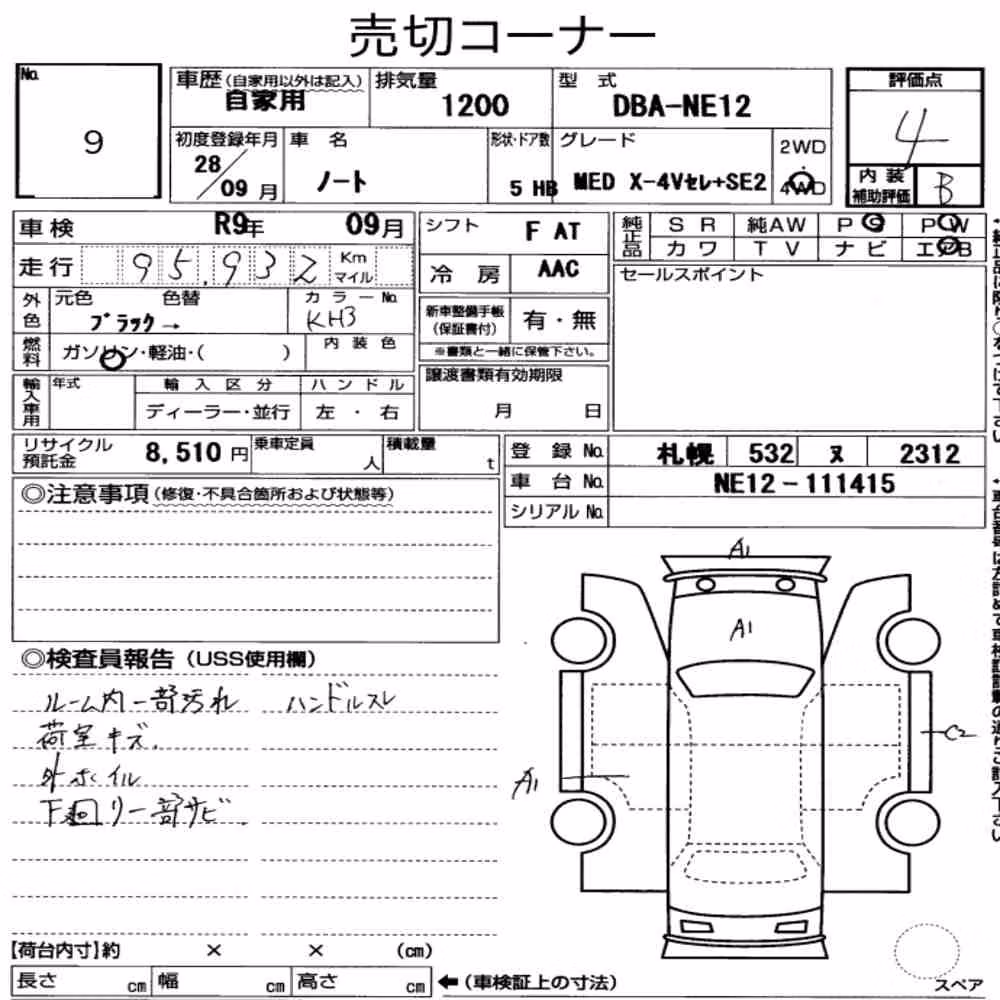 売切コーナー
No.
9
車歴(自家用以外は記入) 排気量 型 式
自家用 1200 DBA-NE12
初度登録年月 車 名 形状・ドア数 グレード 2WD
28/09 月 ノート 5 HB MED X-4Vセレ+SE2 4WD
評価点
4
内 装
補助評価 B
車検 R9年 09月
走行 95,932 Km マイル
外色 元色 色替 カラーNo.
ブラック→ KH3
燃料 ガソリン・軽油・( ) 内 装 色
輸入車用 年式 輸 入 区 分 ハ ン ド ル
ディーラー・並行 左 ・ 右
シフト F AT
冷 房 AAC
新車整備手帳(保証書付) 有・無
※書類と一緒に保管下さい。
譲渡書類有効期限
月 日
純正品 S R 純AW P S P W
カ ワ T V ナ ビ エアB
セールスポイント
リサイクル預託金 8,510 円 乗車定員 人 積載量 t
登 録 No. 札幌 532 ヌ 2312
車 台 No. NE12-111415
シリアル No.
◎注意事項(修復・不具合箇所および状態等)
◎検査員報告(USS使用欄)
ルーム内一部汚れ ハンドルスレ
荷室キズ.
外ホイル
下廻り一部サビ
A1
A1
C2
A1
【荷台内寸】約 × × (cm)
長さ cm 幅 cm 高さ cm ←(車検証上の寸法)
スペア